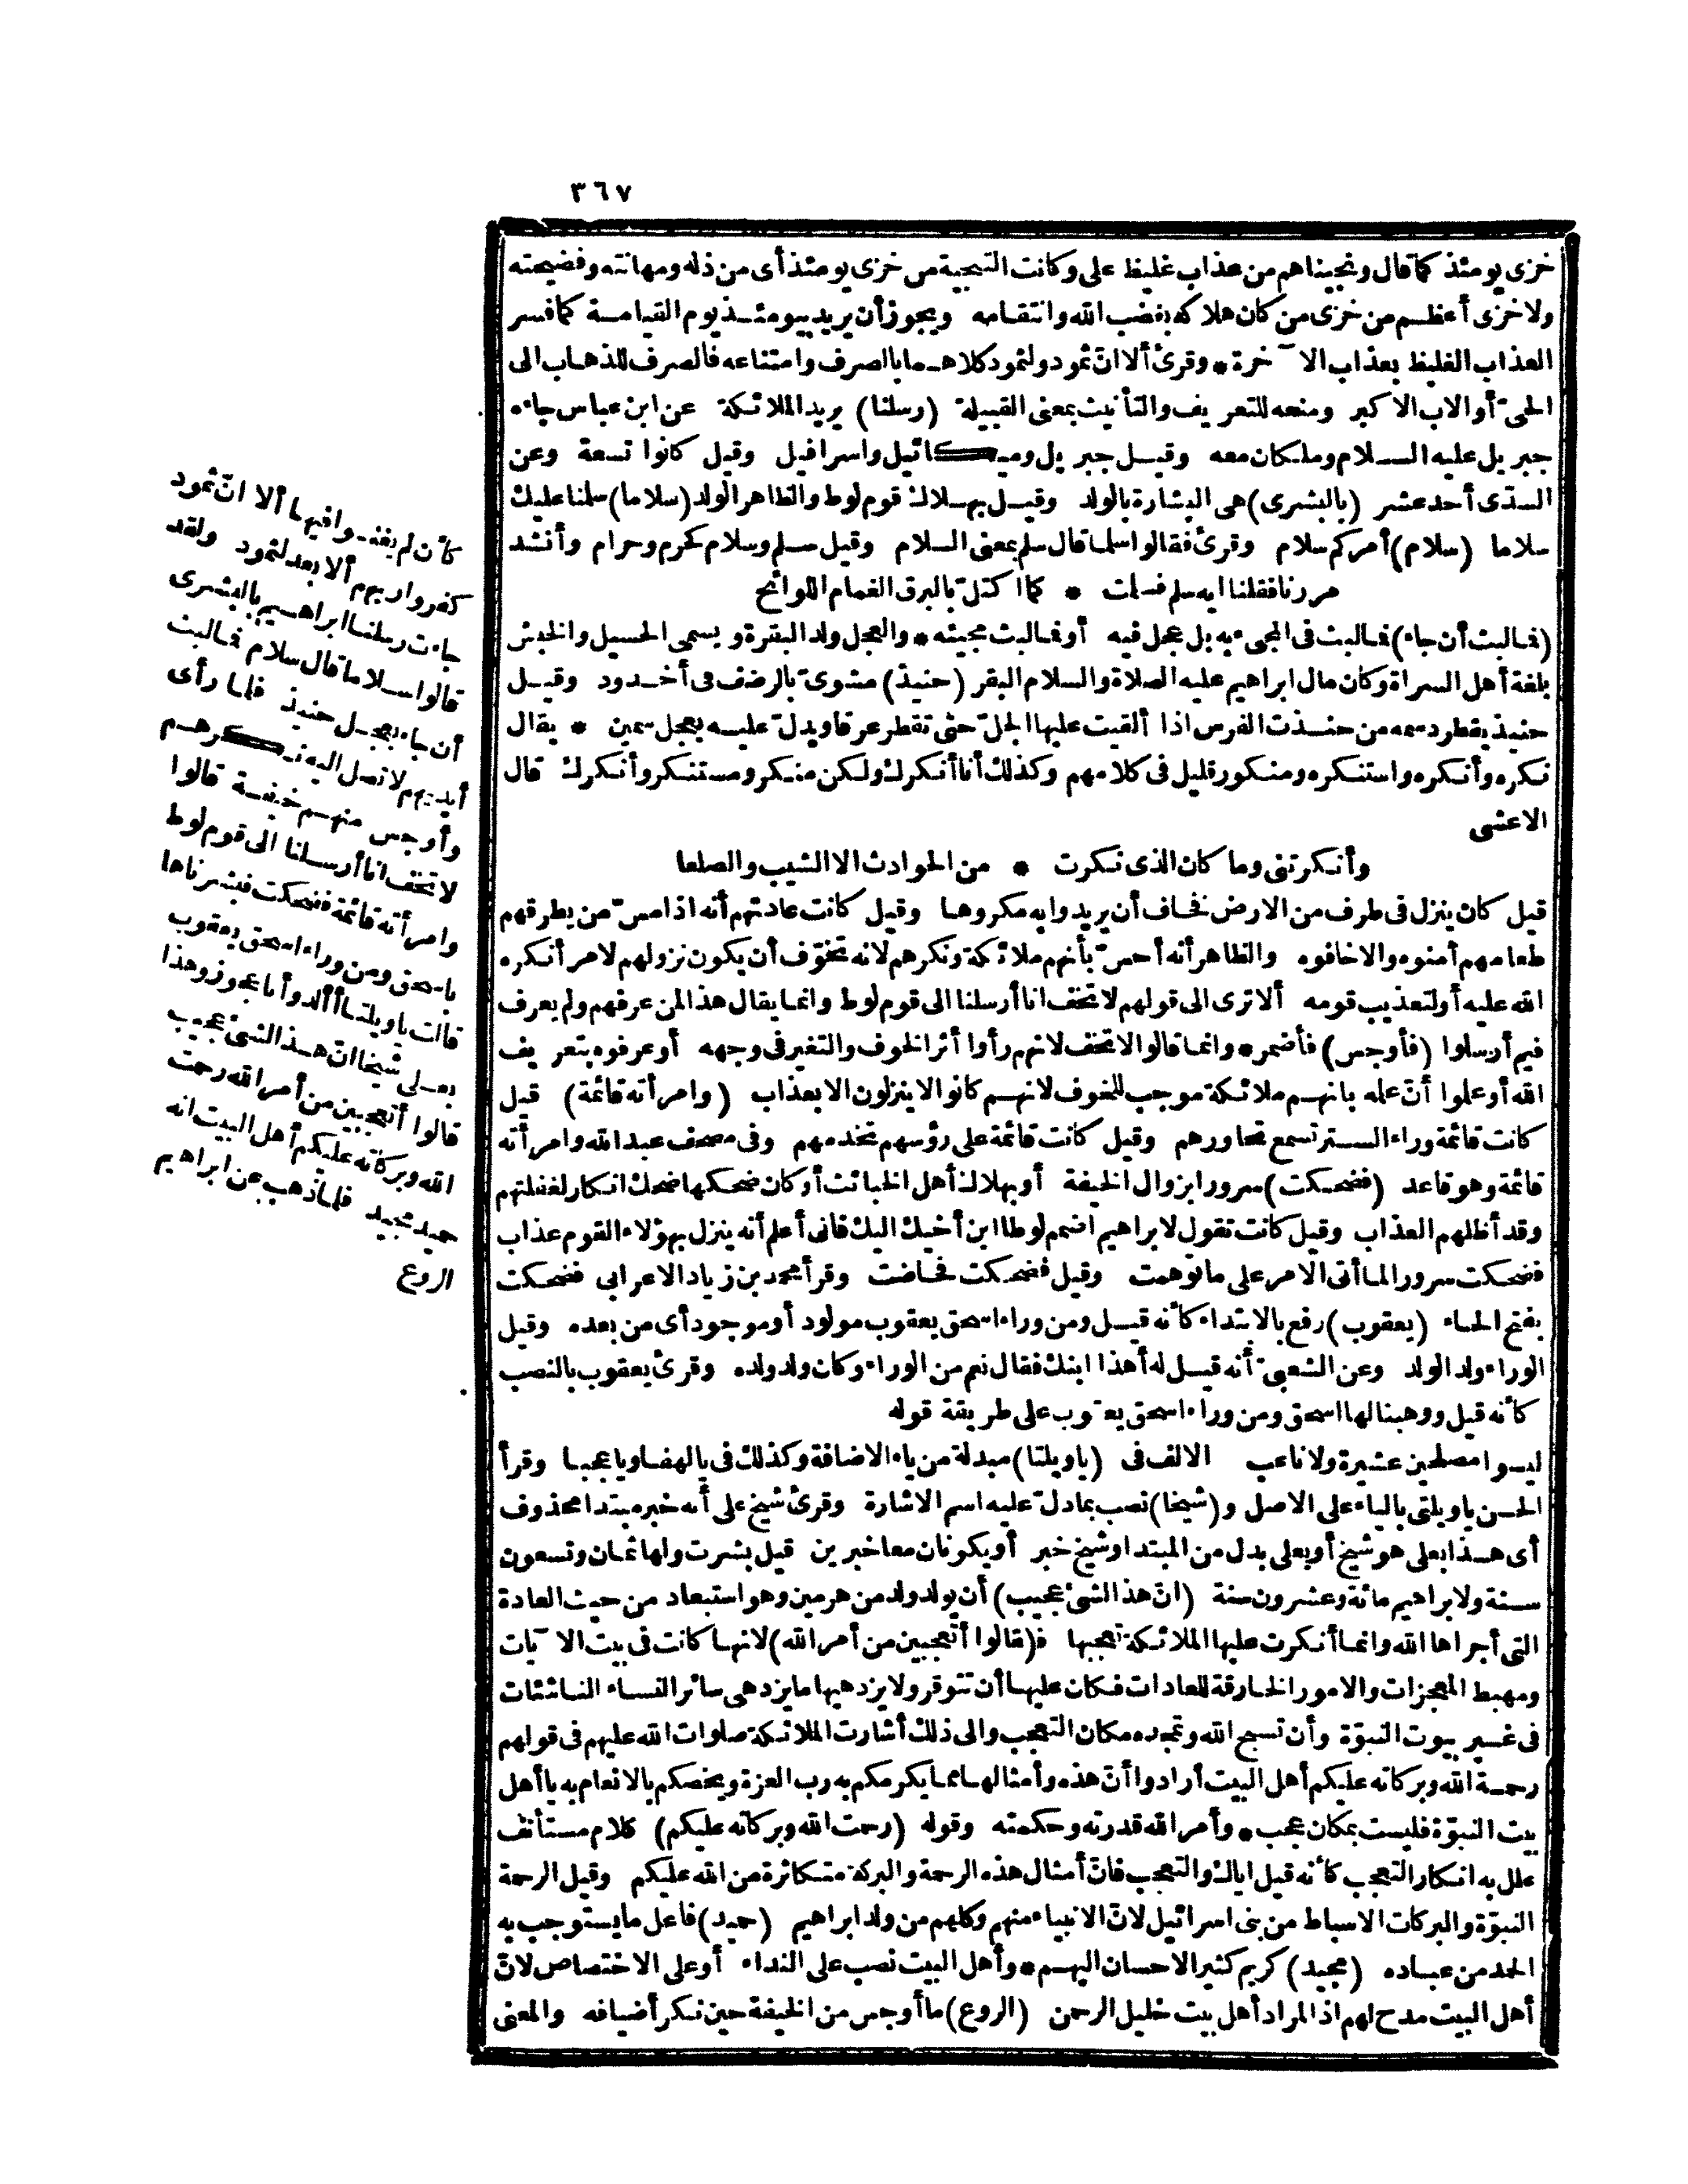 ٣٦٧
خزى يومئذ كما قال ونجيناهم من عذاب غليظ على وكانت التنجية من خزى يومئذ أى من ذله ومهانته وفضيحته
ولا خزى أعظم من خزى من كان هلاكه بغضب الله وانتقامه ويجوز أن يريد بيومئذ يوم القيامة كما فسر
العذاب الغليظ بعذاب الآخرة * وقرئ ألا انّ ثمود ولثمود كلاهما بالصرف وامتناعه فالصرف للذهاب الى
الحىّ أو الاب الاكبر ومنعه للتعريف والتأنيث بمعنى القبيلة (رسلنا) يريد الملائكة عن ابن عباس جاءه
جبريل عليه السلام وملكان معه وقيل جبريل وميكائيل واسرافيل وقيل كانوا تسعة وعن
السدّى أحد عشر (بالبشرى) هى البشارة بالولد وقيل بهلاك قوم لوط والظاهر الولد (سلاما) سلمنا عليك
سلاما (سلام) أمركم سلام وقرئ فقالوا سلما قال سلم بمعنى السلام وقيل سلم وسلام كحرم وحرام وأنشد
مررنا فقلنا ايه سلم فسلمت * كما اكتلّ بالبرق الغمام اللوائح
(فما لبث أن جاء) فما لبث فى المجىء به بل عجل فيه أو فما لبث مجيئه * والعجل ولد البقرة ويسمى الحسيل والخبش
بلغة أهل السراة وكان مال ابراهيم عليه الصلاة والسلام البقر (حنيذ) مشوىّ بالرضف فى أخدود وقيل
حنيذ يقطر دسمه من حنذت الفرس اذا ألقيت عليها الجلّ حتى تقطر عرقا ويدلّ عليه بعجل سمين * يقال
نكره وأنكره واستنكره ومنكور قليل فى كلامهم وكذلك أنا أنكرك ولكن منكر ومستنكر وأنكرك قال
الاعشى
وأنكرتنى وما كان الذى نكرت * من الحوادث الا الشيب والصلعا
قيل كان ينزل فى طرف من الارض فخاف أن يريدوا به مكروها وقيل كانت عادتهم أنه اذا مسّ من يطرقهم
طعامهم أمنوه والا خافوه والظاهر أنه أحسّ بأنهم ملائكة ونكرهم لانه تخوّف أن يكون نزولهم لامر أنكره
الله عليه أو لتعذيب قومه ألا ترى الى قولهم لا تخف انا أرسلنا الى قوم لوط وانما يقال هذا لمن عرفهم ولم يعرف
فيم أرسلوا (فأوجس) فأضمر * وانما قالوا لا تخف لانهم رأوا أثر الخوف والتغير فى وجهه أو عرفوه بتعريف
الله أو علموا أنّ علمه بانهم ملائكة موجب للخوف لانهم كانوا لا ينزلون الا بعذاب (وامرأته قائمة) قيل
كانت قائمة وراء الستر تسمع تحاورهم وقيل كانت قائمة على رؤسهم تخدمهم وفى مصحف عبد الله وامرأته
قائمة وهو قاعد (فضحكت) سرورا بزوال الخيفة أو بهلاك أهل الخبائث أو كان ضحكها ضحك انكار لغفلتهم
وقد أظلهم العذاب وقيل كانت تقول لابراهيم اضمم لوطا ابن أخيك اليك فانى أعلم أنه ينزل بهؤلاء القوم عذاب
فضحكت سرورا لما أتى الامر على ما توهمت وقيل فضحكت فحاضت وقرأ محمد بن زياد الاعرابى فضحكت
بفتح الحاء (يعقوب) رفع بالابتداء كأنه قيل ومن وراء اسحق يعقوب مولود أو موجود أى من بعده وقيل
الوراء ولد الولد وعن الشعبىّ أنه قيل له أهذا ابنك فقال نعم من الوراء وكان ولد ولده وقرئ يعقوب بالنصب
كأنه قيل ووهبنا لها اسحق ومن وراء اسحق يعقوب على طريقة قوله
ليسوا مصلحين عشيرة ولا ناعب الالف فى (ياويلتا) مبدلة من ياء الاضافة وكذلك فى يالهفا وياعجبا وقرأ
الحسن ياويلتى بالياء على الاصل و(شيخا) نصب بما دلّ عليه اسم الاشارة وقرئ شيخ على أنه خبر مبتدا محذوف
أى هذا بعلى هو شيخ أو بعلى بدل من المبتدا وشيخ خبر أو يكونان معا خبرين قيل بشرت ولها ثمان وتسعون
سنة ولابراهيم مائة وعشرون سنة (انّ هذا لشئ عجيب) أن يولد ولد من هرمين وهو استبعاد من حيث العادة
التى أجراها الله وانما أنكرت عليها الملائكة تعجبها ف(قالوا أتعجبين من أمر الله) لانها كانت فى بيت الآيات
ومهبط المعجزات والامور الخارقة للعادات فكان عليها أن تتوقر ولا يزدهيها ما يزدهى سائر النساء الناشئات
فى غير بيوت النبوّة وأن تسبح الله وتمجده مكان التعجب والى ذلك أشارت الملائكة صلوات الله عليهم فى قولهم
رحمة الله وبركاته عليكم أهل البيت أرادوا أنّ هذه وأمثالها مما يكرمكم به رب العزة ويخصكم بالانعام به يا أهل
بيت النبوّة فليست بمكان عجب * وأمر الله قدرته وحكمته وقوله (رحمت الله وبركاته عليكم) كلام مستأنف
علل به انكار التعجب كأنه قيل اياك والتعجب فانّ أمثال هذه الرحمة والبركة متكاثرة من الله عليكم وقيل الرحمة
النبوّة والبركات الاسباط من بنى اسرائيل لانّ الانبياء منهم وكلهم من ولد ابراهيم (حميد) فاعل ما يستوجب به
الحمد من عباده (مجيد) كريم كثير الاحسان اليهم * وأهل البيت نصب على النداء أو على الاختصاص لانّ
أهل البيت مدح لهم اذ المراد أهل بيت خليل الرحمن (الروع) ما أوجس من الخيفة حين نكر أضيافه والمعنى
كأن لم يغنوا فيها ألا انّ ثمود
كفروا ربهم ألا بعدا لثمود ولقد
جاءت رسلنا ابراهيم بالبشرى
قالوا سلاما قال سلام فما لبث
أن جاء بعجل حنيذ فلما رأى
أيديهم لا تصل اليه نكرهم
وأوجس منهم خيفة قالوا
لا تخف انا أرسلنا الى قوم لوط
وامرأته قائمة فضحكت فبشرناها
باسحق ومن وراء اسحق يعقوب
قالت ياويلتا أألد وأنا عجوز وهذا
بعلى شيخا انّ هذا لشئ عجيب
قالوا أتعجبين من أمر الله رحمت
الله وبركاته عليكم أهل البيت انه
حميد مجيد فلما ذهب عن ابراهيم
الروع